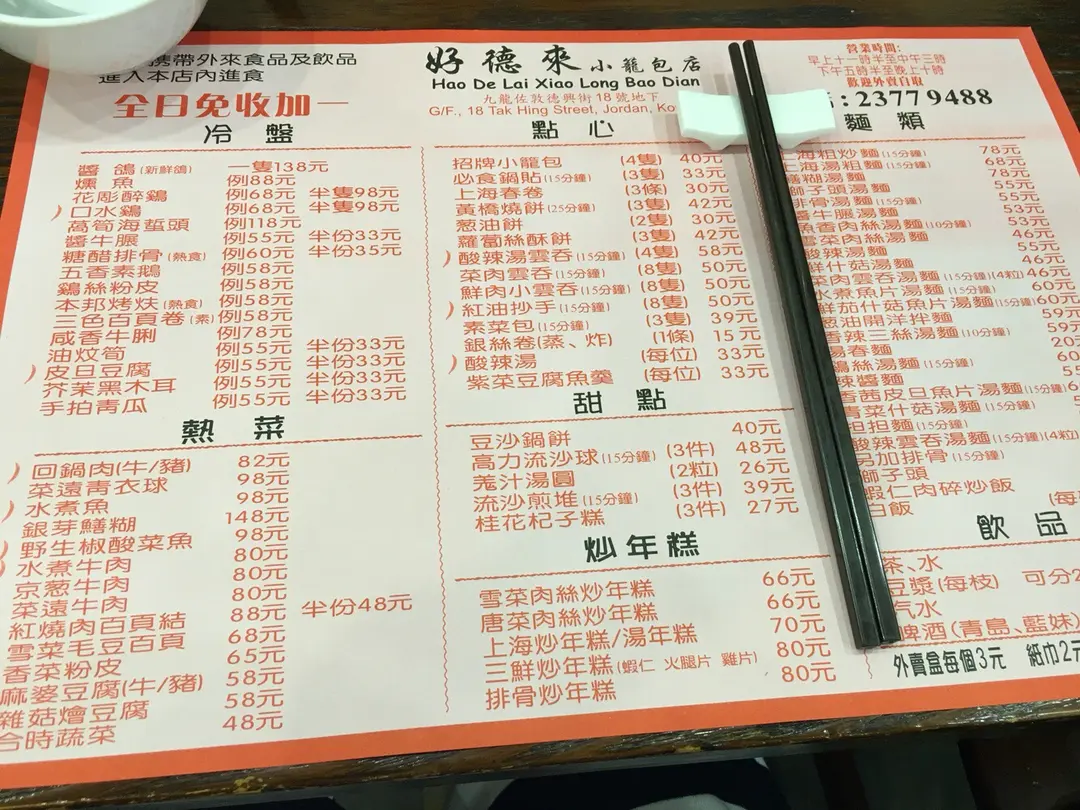 攜帶外來食品及飲品
進入本店內進食
全日免收加一
好德來小籠包店
Hao De Lai Xiao Long Bao Dian
九龍佐敦德興街18號地下
G/F., 18 Tak Hing Street, Jordan,
營業時間:
早上十一時半至中午三時
下午五時半至晚上十時
歡迎外賣自取
: 2377 9488
冷盤
醬鴿(新鮮鴿) 一隻138元
燻魚 例88元
花彫醉鷄 例68元 半隻98元
口水鷄 例68元 半隻98元
萵筍海蜇頭 例118元
醬牛腱 例55元 半份33元
糖醋排骨(熱食) 例60元 半份35元
五香素鵝 例58元
鷄絲粉皮 例58元
本邦烤麩(熱食) 例58元
三色百頁卷(素) 例58元
咸香牛脷 例78元
油炆筍 例55元 半份33元
皮旦豆腐 例55元 半份33元
芥茉黑木耳 例55元 半份33元
手拍青瓜 例55元 半份33元
熱菜
回鍋肉(牛/豬) 82元
菜遠青衣球 98元
水煮魚 98元
銀芽鱔糊 148元
野生椒酸菜魚 98元
水煮牛肉 80元
京葱牛肉 80元
菜遠牛肉 80元
紅燒肉百頁結 88元 半份48元
雪菜毛豆百頁 68元
香菜粉皮 65元
麻婆豆腐(牛/豬) 58元
雜菇燴豆腐 58元
合時蔬菜 48元
點心
招牌小籠包 (4隻) 40元
必食鍋貼(15分鐘) (3隻) 33元
上海春卷 (3條) 30元
黃橋燒餅(25分鐘) (3隻) 42元
葱油餅 (2隻) 30元
蘿蔔絲酥餅 (3隻) 42元
酸辣湯雲吞(15分鐘) (4隻) 58元
菜肉雲吞(15分鐘) (8隻) 50元
鮮肉小雲吞(15分鐘) (8隻) 50元
紅油抄手(15分鐘) (8隻) 50元
素菜包(15分鐘) (3隻) 39元
銀絲卷(蒸、炸) (1條) 15元
酸辣湯 (每位) 33元
紫菜豆腐魚羹 (每位) 33元
甜點
豆沙鍋餅 40元
高力流沙球(15分鐘) (3件) 48元
羗汁湯圓 (2粒) 26元
流沙煎堆(15分鐘) (3件) 39元
桂花杞子糕 (3件) 27元
炒年糕
雪菜肉絲炒年糕 66元
唐菜肉絲炒年糕 66元
上海炒年糕/湯年糕 70元
三鮮炒年糕(蝦仁 火腿片 雞片) 80元
排骨炒年糕 80元
麵類
上海粗炒麵(15分鐘) 78元
上海湯粗麵(15分鐘) 68元
鱔糊湯麵 78元
獅子頭湯麵 55元
排骨湯麵(15分鐘) 55元
醬牛腱湯麵 53元
魚香肉絲湯麵(10分鐘) 53元
雪菜肉絲湯麵 46元
酸辣湯麵 55元
鮮什菇湯麵 46元
菜肉雲吞湯麵(15分鐘)(4粒) 46元
水煮魚片湯麵 60元
鮮茄什菇魚片湯麵(15分鐘) 60元
葱油開洋拌麵 59元
香辣三絲湯麵(10分鐘) 59元
陽春麵 20元
鷄絲湯麵(15分鐘) 60元
辣醬麵
香茜皮旦魚片湯麵(15分鐘)
青菜什菇湯麵(15分鐘)
担担麵(15分鐘)
酸辣雲吞湯麵(15分鐘)(4粒)
另加排骨(15分鐘)
獅子頭
蝦仁肉碎炒飯
白飯
飲品
茶、水
豆漿(每枝) 可分
汽水
啤酒(青島、藍妹)
外賣盒每個3元 紙巾2元